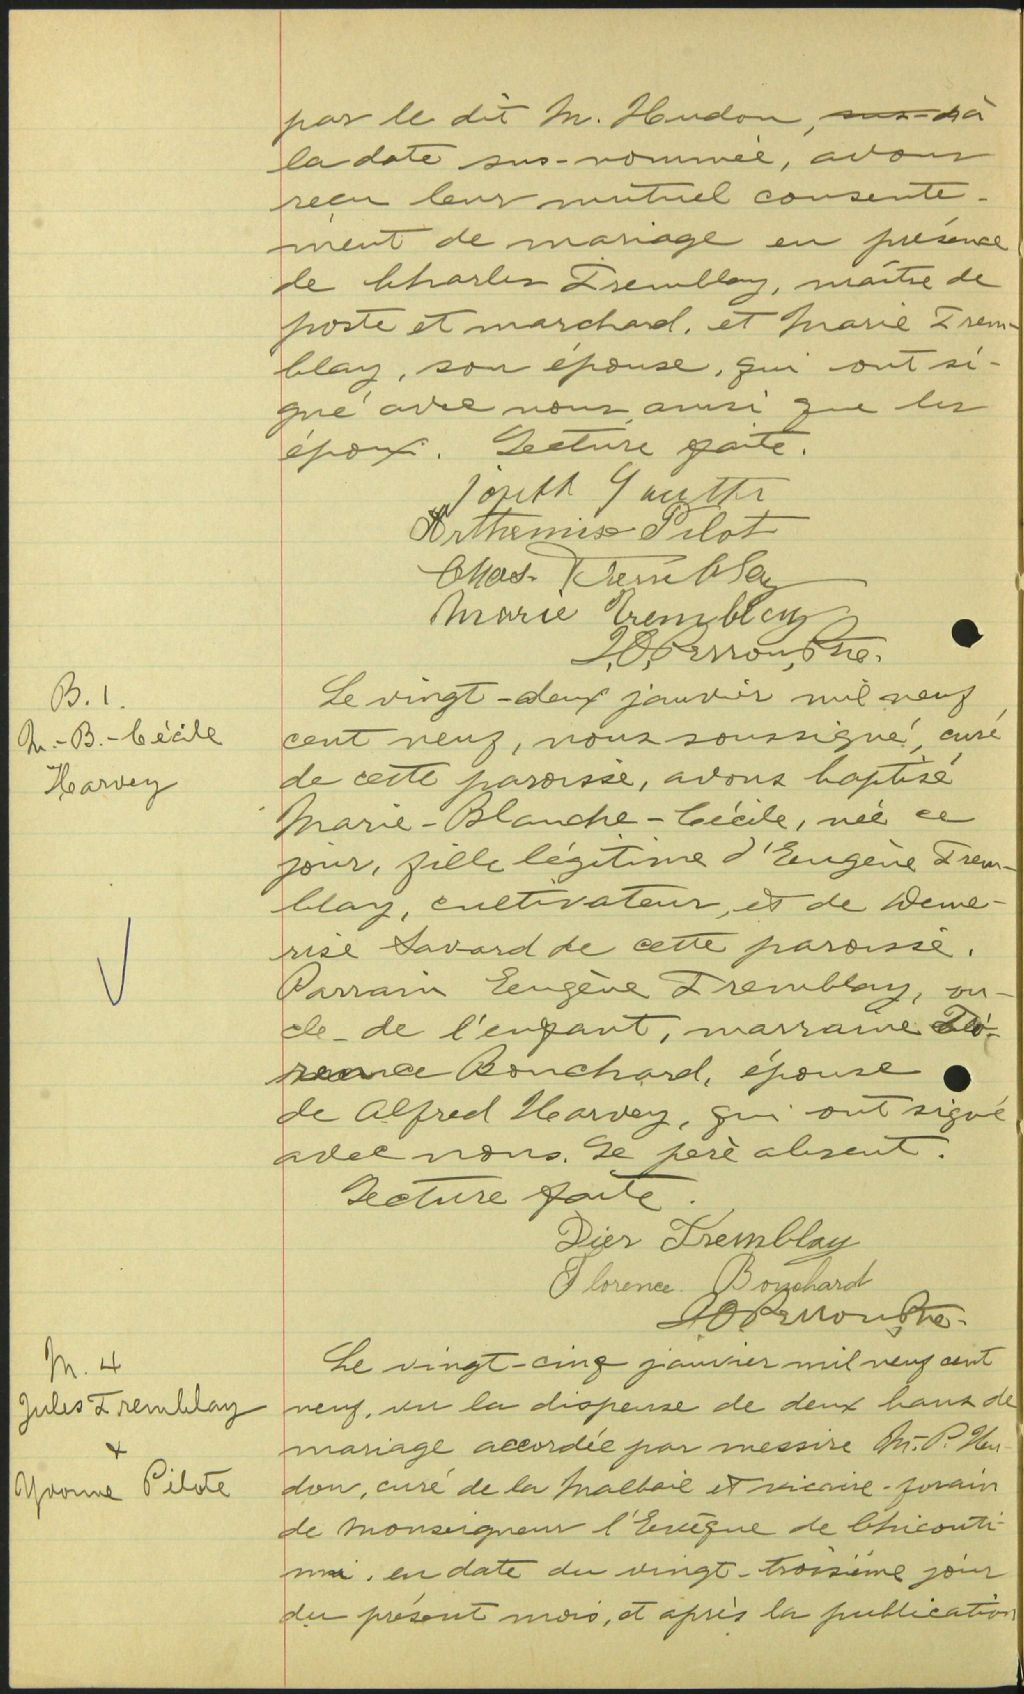 par le dit M. Hudon, à
la date sus-nommée, avons
reçu leur mutuel consente-
ment de mariage en présence
de Charles Tremblay, maître de
poste et marchard, et Marie Trem-
blay, son épouse, qui ont si-
gné avec nous ainsi que les
époux. Lecture faite.
Arthemise Pilot
Chas. Tremblay
Marie Tremblay
Perron, Ptre.
B. 1.
M.-B.-Cécile
Harvey
Le vingt-deux janvier mil neuf
cent neuf, nous soussigné, curé
de cette paroisse, avons baptisé
Marie-Blanche-Cécile, née ce
jour, fille légitime d'Eugène Trem-
blay, cultivateur, et de Deme-
rise Savard de cette paroisse.
Parrain Eugène Tremblay, on-
cle de l'enfant, marraine Flo-
rence Bouchard, épouse
de Alfred Harvey, qui ont signé
avec nous. Le père absent.
Lecture faite.
Tremblay
Florence Bouchard
Perron, Ptre.
M. 4
Jules Tremblay
+
Yvonne Pilote
Le vingt-cinq janvier mil neuf cent
neuf, vu la dispense de deux bans de
mariage accordée par messire M. P. Hu-
don, curé de la Malbaie et vicaire-forain
de Monseigneur l'Evêque de Chicouti-
mi, en date du vingt-troisième jour
du présent mois, et après la publication